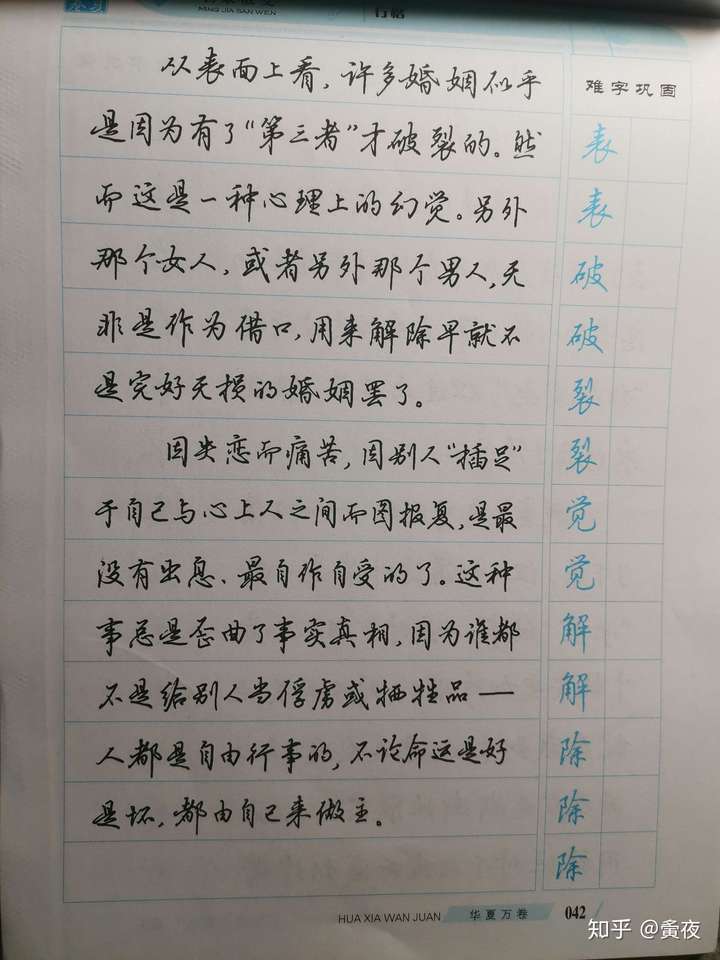 MING JIA SAN WEN
行楷
从表面上看，许多婚姻似乎
是因为有了“第三者”才破裂的。然
而这是一种心理上的幻觉。另外
那个女人，或者另外那个男人，无
非是作为借口，用来解除早就不
是完好无损的婚姻罢了。
因失恋而痛苦，因别人“插足”
于自己与心上人之间而图报复，是最
没有出息、最自作自受的了。这种
事总是歪曲了事实真相，因为谁都
不是给别人当俘虏或牺牲品——
人都是自由行事的，不论命运是好
是坏，都由自己来做主。
难字巩固
表
表
破
破
裂
裂
觉
觉
解
解
除
除
除
HUA XIA WAN JUAN
华夏万卷
042
知乎 @夤夜